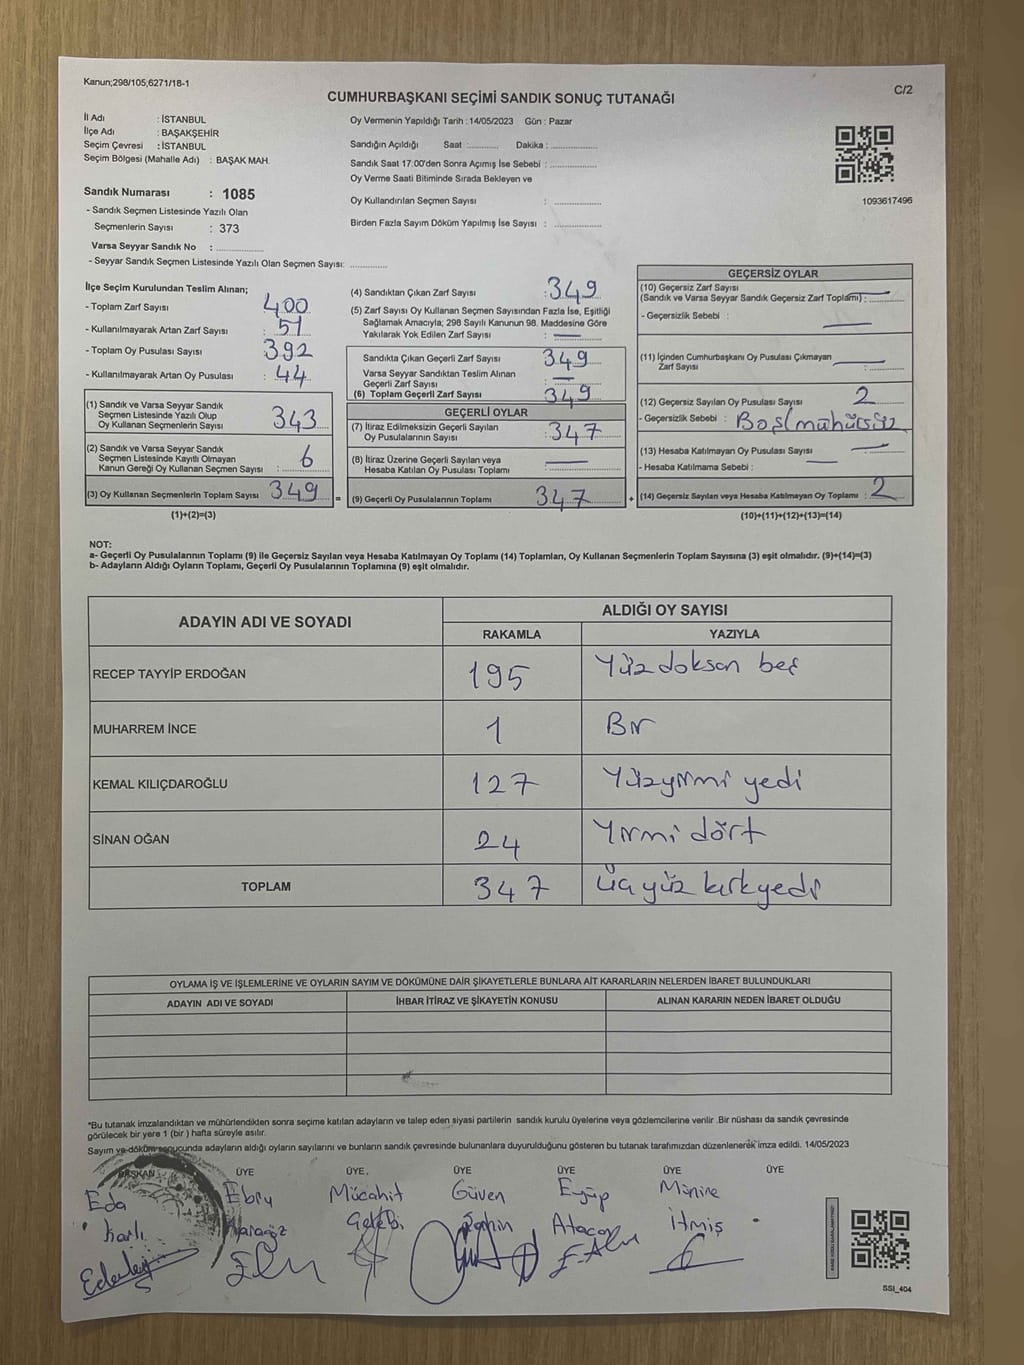 Kanun;298/105;6271/18-1
C/2
CUMHURBAŞKANI SEÇİMİ SANDIK SONUÇ TUTANAĞI
İl Adı : İSTANBUL
İlçe Adı : BAŞAKŞEHİR
Seçim Çevresi : İSTANBUL
Seçim Bölgesi (Mahalle Adı) : BAŞAK MAH.
Sandık Numarası : 1085
- Sandık Seçmen Listesinde Yazılı Olan
Seçmenlerin Sayısı : 373
Varsa Seyyar Sandık No : ................
- Seyyar Sandık Seçmen Listesinde Yazılı Olan Seçmen Sayısı: ............
Oy Vermenin Yapıldığı Tarih : 14/05/2023 Gün : Pazar
Sandığın Açıldığı Saat :.......... Dakika : ................
Sandık Saat 17.00'den Sonra Açımış İse Sebebi : ................
Oy Verme Saati Bitiminde Sırada Bekleyen ve
Oy Kullandırılan Seçmen Sayısı : ................
Birden Fazla Sayım Döküm Yapılmış İse Sayısı : ................
1093617496
İlçe Seçim Kurulundan Teslim Alınan;
- Toplam Zarf Sayısı : 400
- Kullanılmayarak Artan Zarf Sayısı : 51
- Toplam Oy Pusulası Sayısı : 392
- Kullanılmayarak Artan Oy Pusulası : 44
(1) Sandık ve Varsa Seyyar Sandık
Seçmen Listesinde Yazılı Olup
Oy Kullanan Seçmenlerin Sayısı : 343
(2) Sandık ve Varsa Seyyar Sandık
Seçmen Listesinde Kayıtlı Olmayan
Kanun Gereği Oy Kullanan Seçmen Sayısı : 6
(3) Oy Kullanan Seçmenlerin Toplam Sayısı : 349 =
(1)+(2)=(3)
(4) Sandıktan Çıkan Zarf Sayısı : 349
(5) Zarf Sayısı Oy Kullanan Seçmen Sayısından Fazla İse, Eşitliği
Sağlamak Amacıyla; 298 Sayılı Kanunun 98. Maddesine Göre
Yakılarak Yok Edilen Zarf Sayısı : —
Sandıkta Çıkan Geçerli Zarf Sayısı : 349
Varsa Seyyar Sandıktan Teslim Alınan
Geçerli Zarf Sayısı : —
(6) Toplam Geçerli Zarf Sayısı : 349
GEÇERLİ OYLAR
(7) İtiraz Edilmeksizin Geçerli Sayılan
Oy Pusulalarının Sayısı : 347
(8) İtiraz Üzerine Geçerli Sayılan veya
Hesaba Katılan Oy Pusulası Toplamı : —
(9) Geçerli Oy Pusulalarının Toplamı : 347 +
GEÇERSİZ OYLAR
(10) Geçersiz Zarf Sayısı
(Sandık ve Varsa Seyyar Sandık Geçersiz Zarf Toplamı) : —
- Geçersizlik Sebebi : —
(11) İçinden Cumhurbaşkanı Oy Pusulası Çıkmayan
Zarf Sayısı : —
(12) Geçersiz Sayılan Oy Pusulası Sayısı : 2
- Geçersizlik Sebebi : Boş/mühürsüz
(13) Hesaba Katılmayan Oy Pusulası Sayısı : —
- Hesaba Katılmama Sebebi : —
(14) Geçersiz Sayılan veya Hesaba Katılmayan Oy Toplamı : 2
(10)+(11)+(12)+(13)=(14)
NOT:
a- Geçerli Oy Pusulalarının Toplamı (9) ile Geçersiz Sayılan veya Hesaba Katılmayan Oy Toplamı (14) Toplamları, Oy Kullanan Seçmenlerin Toplam Sayısına (3) eşit olmalıdır. (9)+(14)=(3)
b- Adayların Aldığı Oyların Toplamı, Geçerli Oy Pusulalarının Toplamına (9) eşit olmalıdır.
ADAYIN ADI VE SOYADI ALDIĞI OY SAYISI
RAKAMLA YAZIYLA
RECEP TAYYİP ERDOĞAN 195 Yüz doksan beş
MUHARREM İNCE 1 Bir
KEMAL KILIÇDAROĞLU 127 Yüzyirmi yedi
SİNAN OĞAN 24 Yirmi dört
TOPLAM 347 Üç yüz kırk yedi
OYLAMA İŞ VE İŞLEMLERİNE VE OYLARIN SAYIM VE DÖKÜMÜNE DAİR ŞİKAYETLERLE BUNLARA AİT KARARLARIN NELERDEN İBARET BULUNDUKLARI
ADAYIN ADI VE SOYADI İHBAR İTİRAZ VE ŞİKAYETİN KONUSU ALINAN KARARIN NEDEN İBARET OLDUĞU
*Bu tutanak imzalandıktan ve mühürlendikten sonra seçime katılan adayların ve talep eden siyasi partilerin sandık kurulu üyelerine veya gözlemcilerine verilir .Bir nüshası da sandık çevresinde
görülecek bir yere 1 (bir ) hafta süreyle asılır.
Sayım ve döküm sonucunda adayların aldığı oyların sayılarını ve bunların sandık çevresinde bulunanlara duyurulduğunu gösteren bu tutanak tarafımızdan düzenlenerek imza edildi. 14/05/2023
BAŞKAN ÜYE ÜYE. ÜYE ÜYE ÜYE ÜYE
Eda Ebru Mücahit Güven Eyüp Münire
Karlı Karagöz Çelebi Şahin Ataçay İtmiş
SSI_404